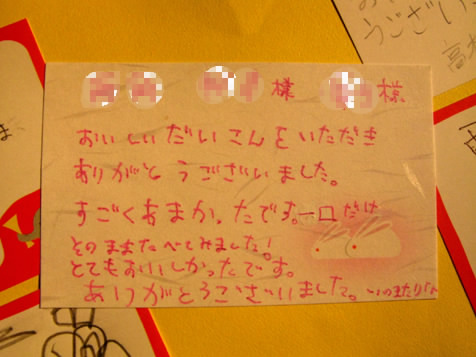 様 様
おいしいだいこんをいただき
ありがとうございました。
すごくあまかったです。一口だけ
そのままたべてみました!
とてもおいしかったです。
ありがとうございました。
うござい